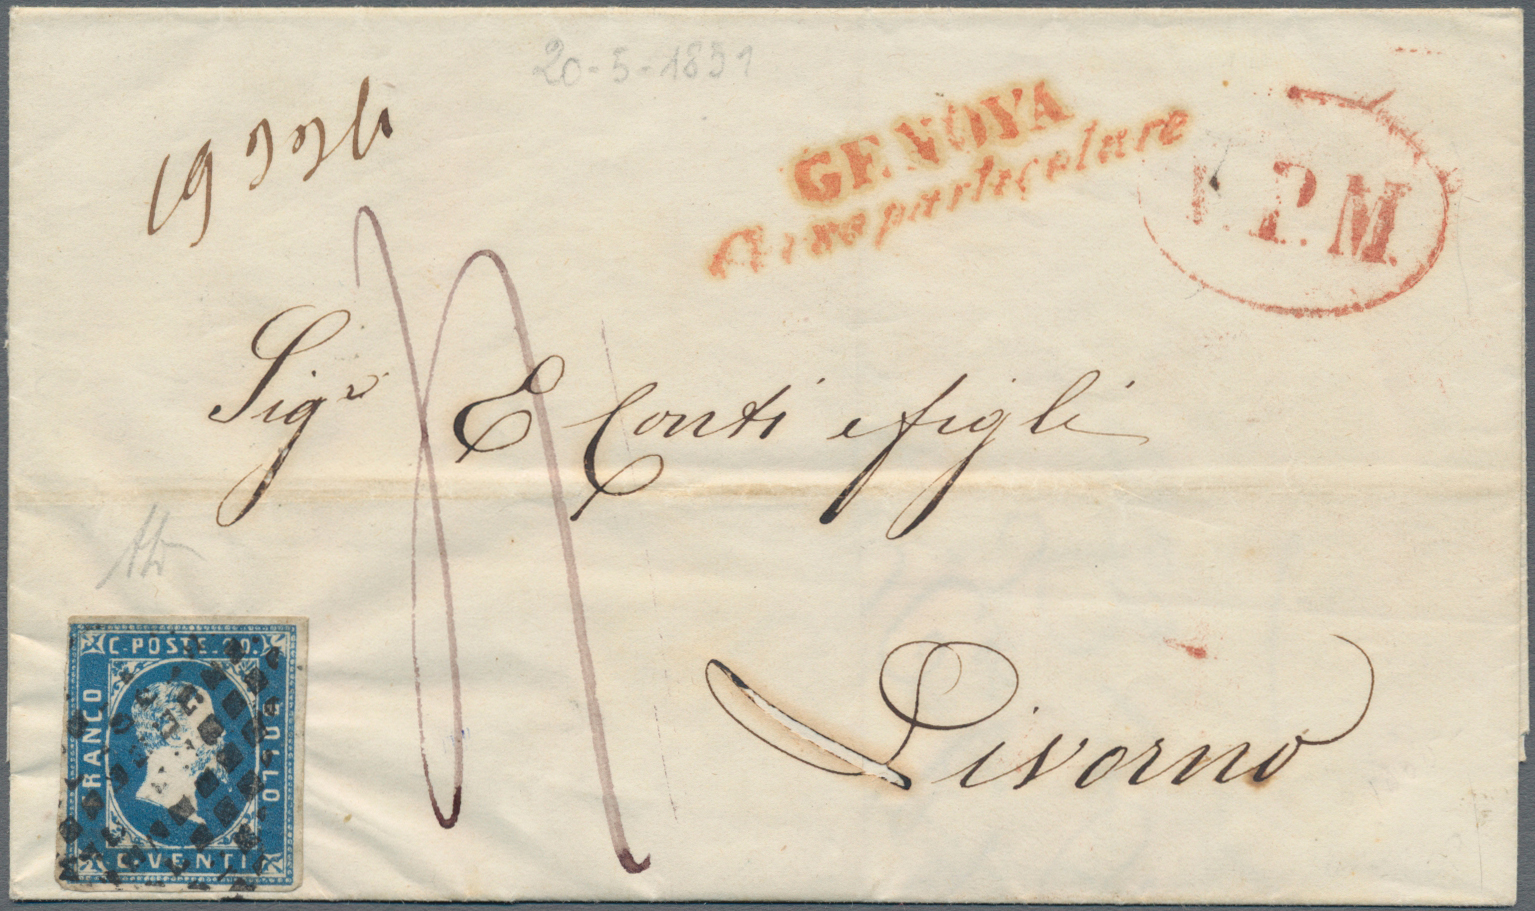 20-5-1851
GENOVA
Arno particolare
V.P.M.
Sigr E Conti e figli
Livorno
C. POSTE. 20.
FRANCO
BOLLO
C. VENTI